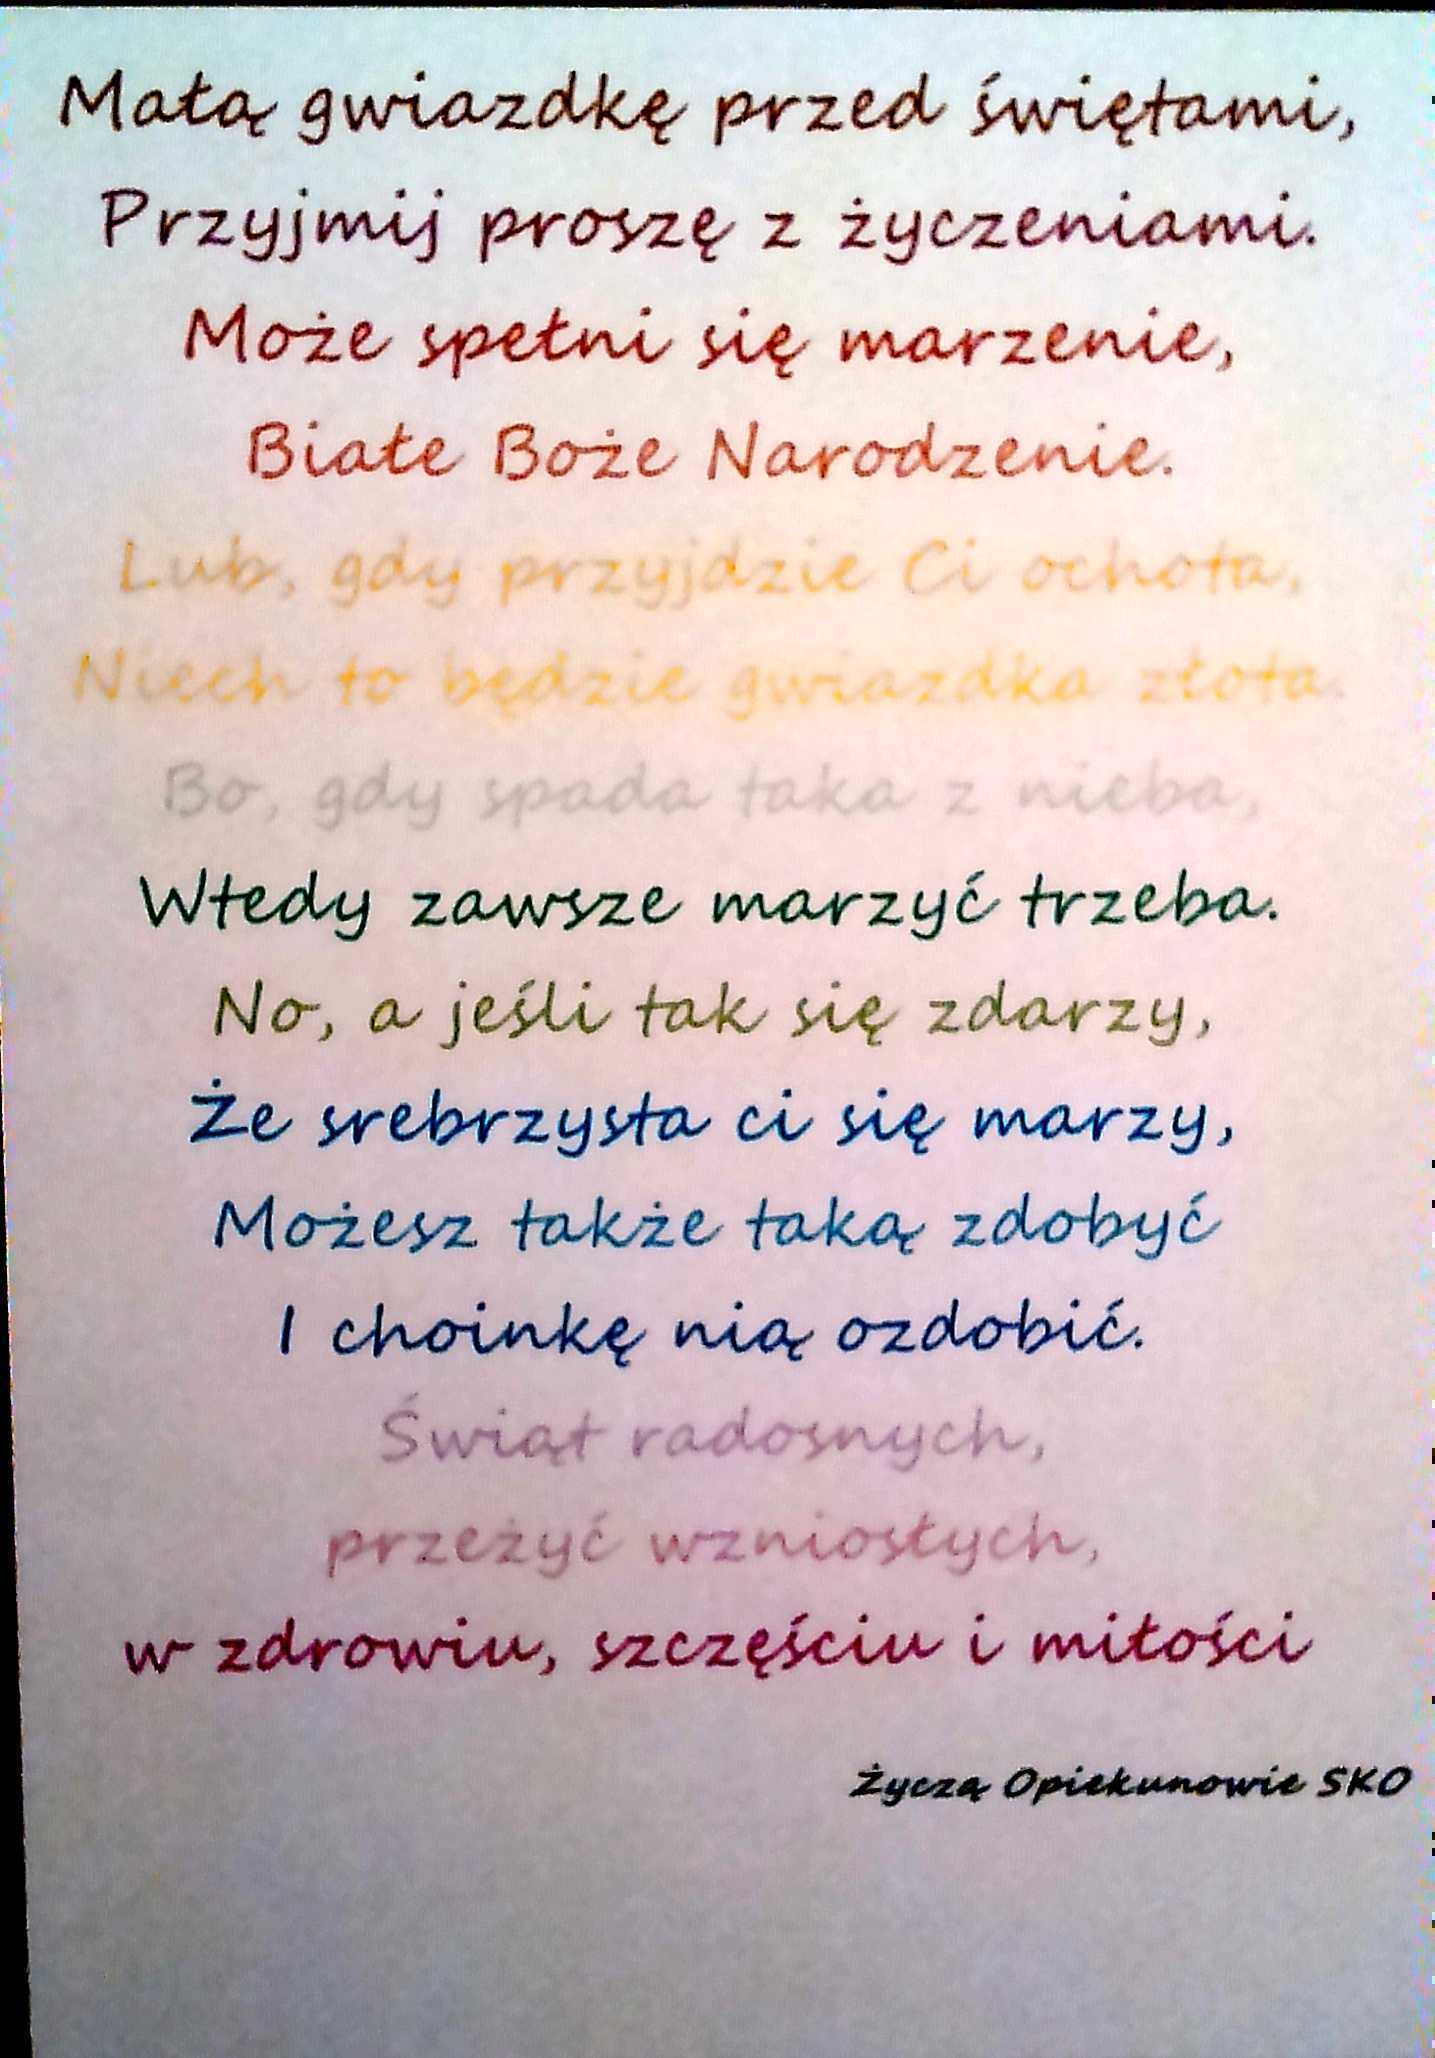 Małą gwiazdkę przed świętami,
Przyjmij proszę z życzeniami.
Może spełni się marzenie,
Białe Boże Narodzenie.
Lub, gdy przyjdzie Ci ochota,
Niech to będzie gwiazdka złota.
Bo, gdy spada taka z nieba,
Wtedy zawsze marzyć trzeba.
No, a jeśli tak się zdarzy,
Że srebrzysta ci się marzy,
Możesz także taką zdobyć
I choinkę nią ozdobić.
Świąt radosnych,
przeżyć wzniosłych,
w zdrowiu, szczęściu i miłości
Życzą Opiekunowie SKO